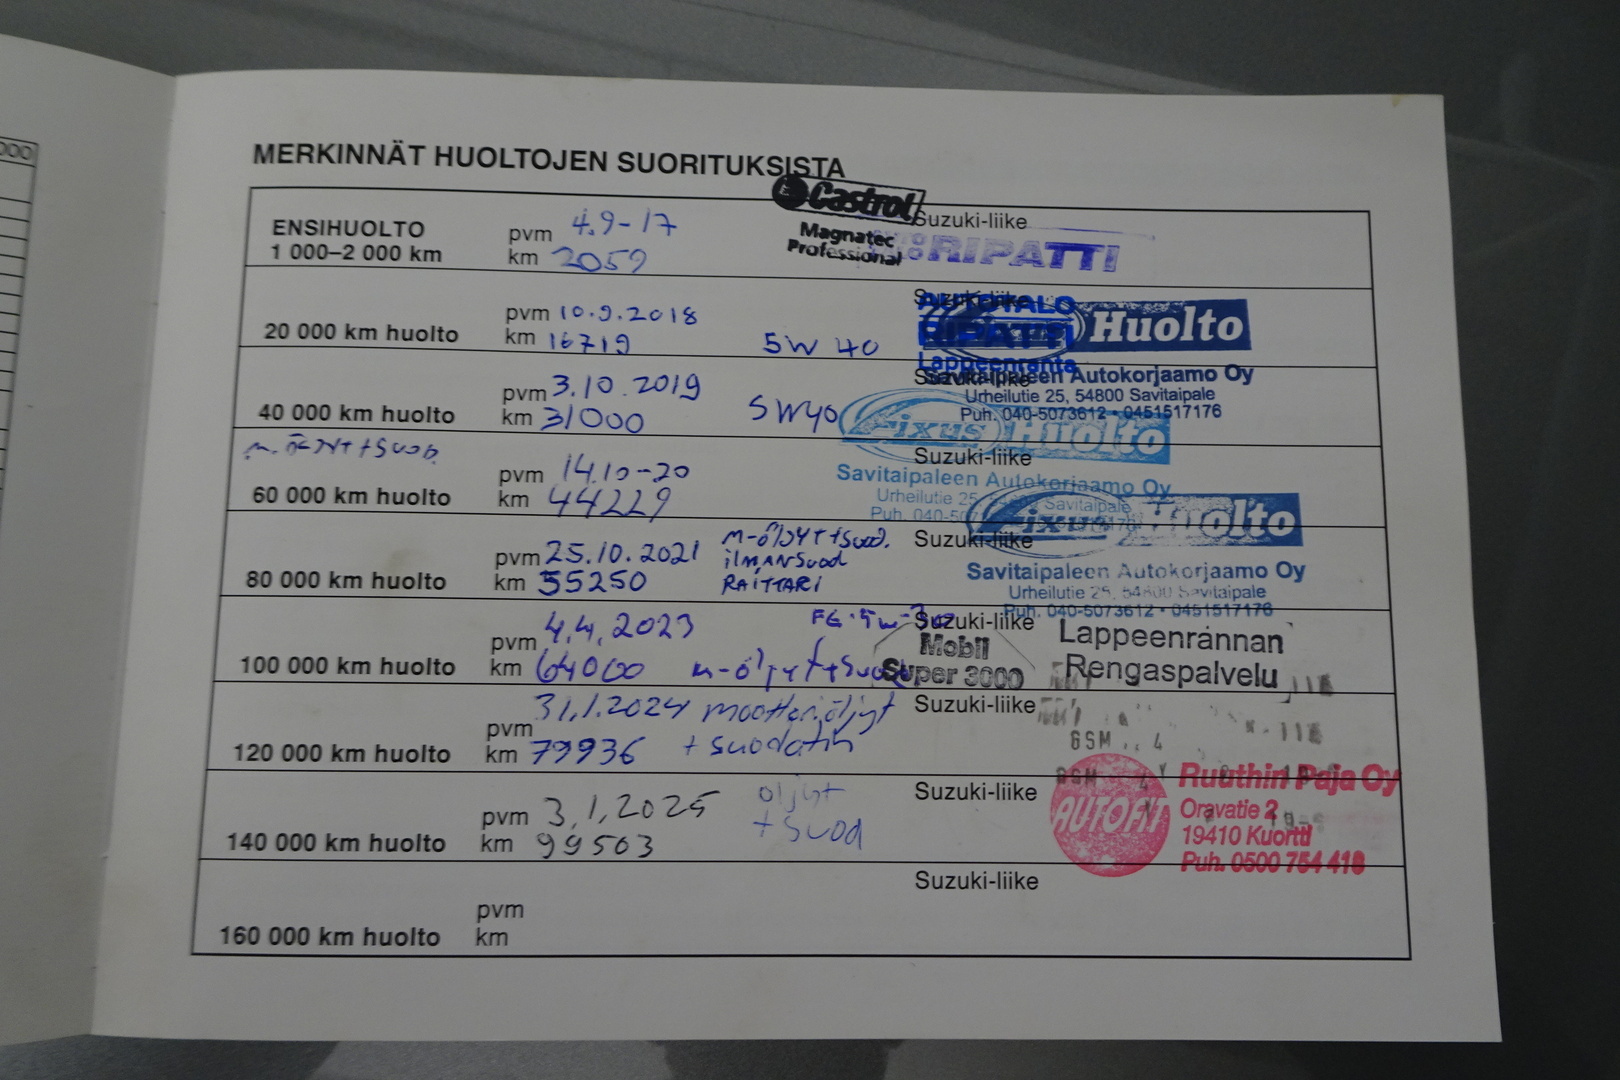 000
MERKINNÄT HUOLTOJEN SUORITUKSISTA
ENSIHUOLTO
1 000–2 000 km
pvm 4.9-17
km 2059
Castrol
Magnatec
Professional
Suzuki-liike
RIPATTI
20 000 km huolto
pvm 10.9.2018
km 16719
5W 40
Suzuki-liike
AUTOTALO
RIPATTI
Lappeenranta
Huolto
Savitaipaleen Autokorjaamo Oy
Urheilutie 25, 54800 Savitaipale
Puh. 040-5073612 • 0451517176
40 000 km huolto
pvm 3.10.2019
km 31000
5W40
Suzuki-liike
Fixus Huolto
Savitaipaleen Autokorjaamo Oy
Urheilutie 25, 54800 Savitaipale
Puh. 040-507
60 000 km huolto
pvm 14.10-20
km 44229
Suzuki-liike
Fixus Huolto
Savitaipaleen Autokorjaamo Oy
Urheilutie 25, 54800 Savitaipale
Puh. 040-5073612 • 0451517176
80 000 km huolto
pvm 25.10.2021
km 55250
m-ÖLJYT+Suod.
iLMANSuod
RAITTARI
Suzuki-liike
100 000 km huolto
pvm 4.4.2023
km 64000
m-öljyt+Suod
Suzuki-liike
Mobil
Super 3000
Lappeenrannan
Rengaspalvelu
120 000 km huolto
pvm 31.1.2024
km 79936
moottoriöljyt
+ suodatin
Suzuki-liike
GSM
140 000 km huolto
pvm 3.1.2025
km 99503
öljyt
+ suod
Suzuki-liike
AUTOFIT
Ruuthin Paja Oy
Oravatie 2
19410 Kuortti
Puh. 0500 754 418
160 000 km huolto
pvm
km
Suzuki-liike